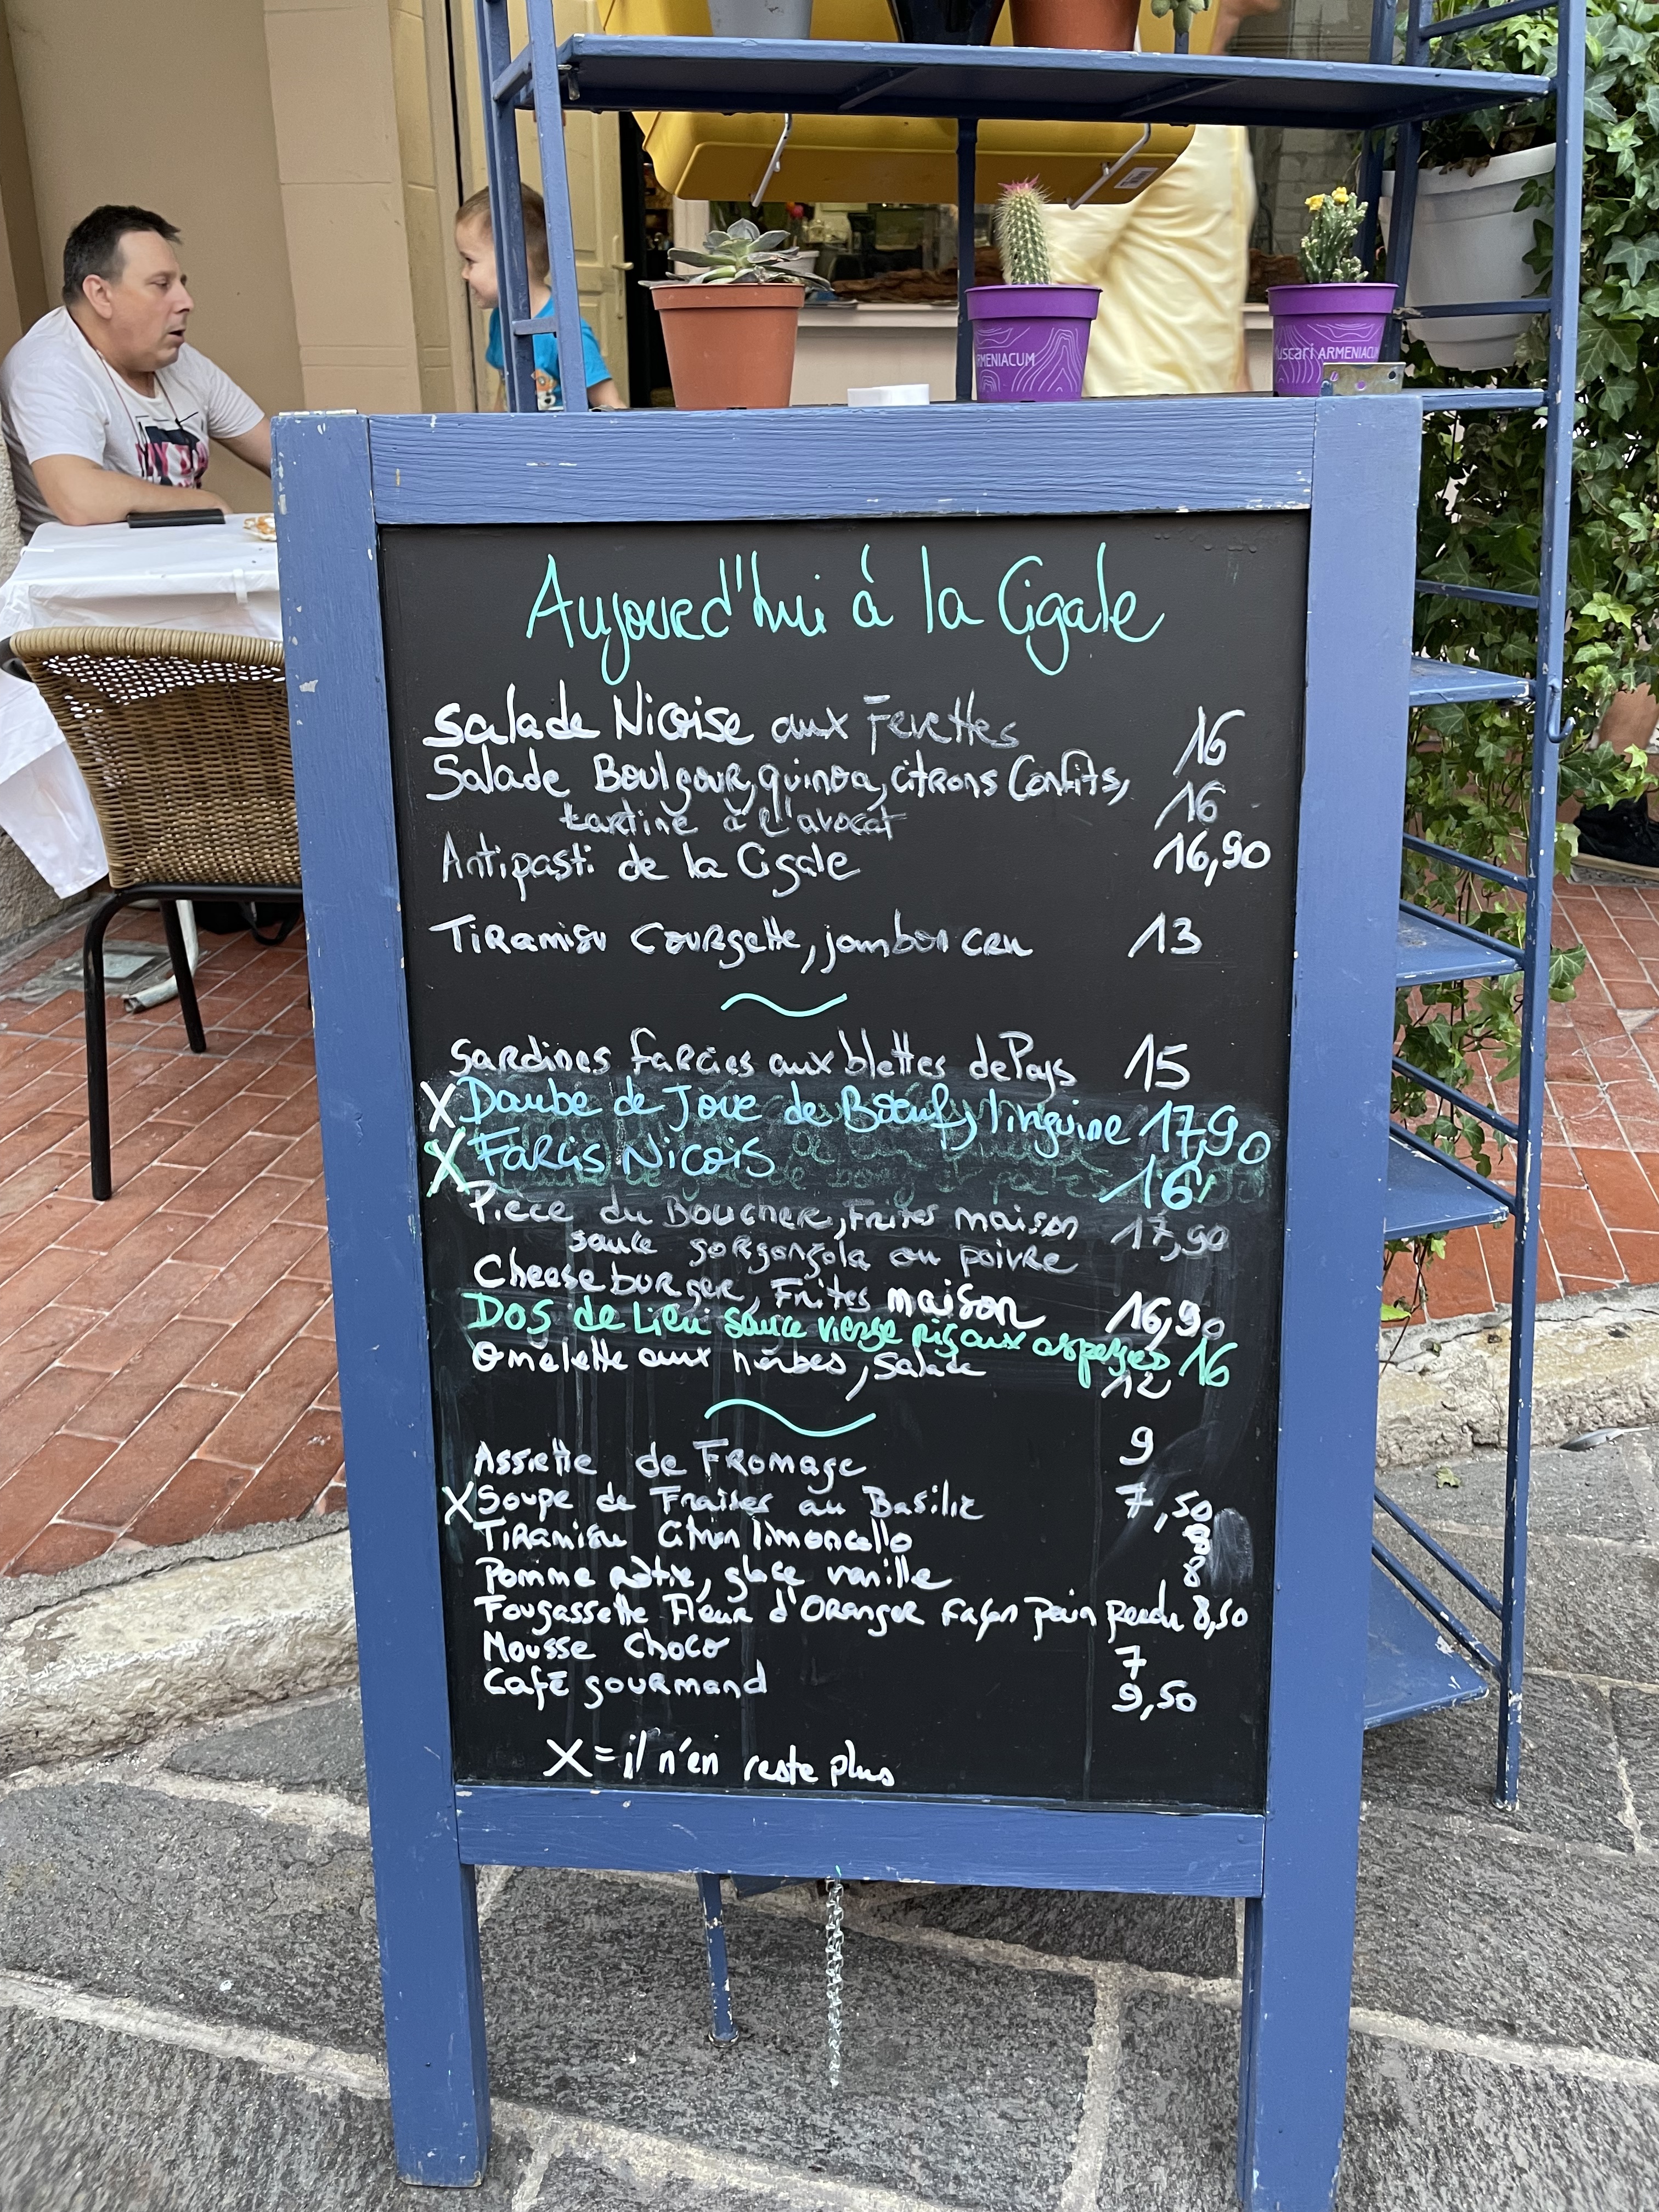 Aujourd'hui à la Cigale
Salade Niçoise aux Fevettes 16
Salade Boulgour, quinoa, citrons Confits, 16
tartine à l'avocat
Antipasti de la Cigale 16,90
Tiramisu Courgette, jambon cru 13
Sardines farcies aux blettes de Pays 15
X Daube de Joue de Boeuf, linguine 17,90
X Farcis Niçois 16
Pièce du Boucher, Frites maison 17,90
sauce gorgonzola ou poivre
Cheese burger, Frites maison 16,90
Dos de Lieu sauce vierge aux asperges 16
Omelette aux herbes, Salade 12
Assiette de Fromage 9
X Soupe de Fraises au Basilic 7,50
Tiramisu Citron limoncello 8
Pomme rôtie, glace vanille 8
Fougassette Fleur d'Oranger façon pain perdu 8,50
Mousse Choco 7
Café gourmand 9,50
X = il n'en reste plus
MENIACUM
uscari ARMENIACU